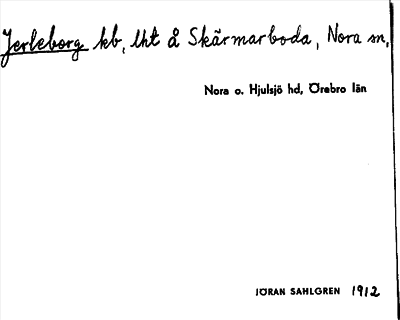 Jerleborg kb, lht å Skärmarboda, Nora sn,
Nora o. Hjulsjö hd, Örebro län
JÖRAN SAHLGREN 1912